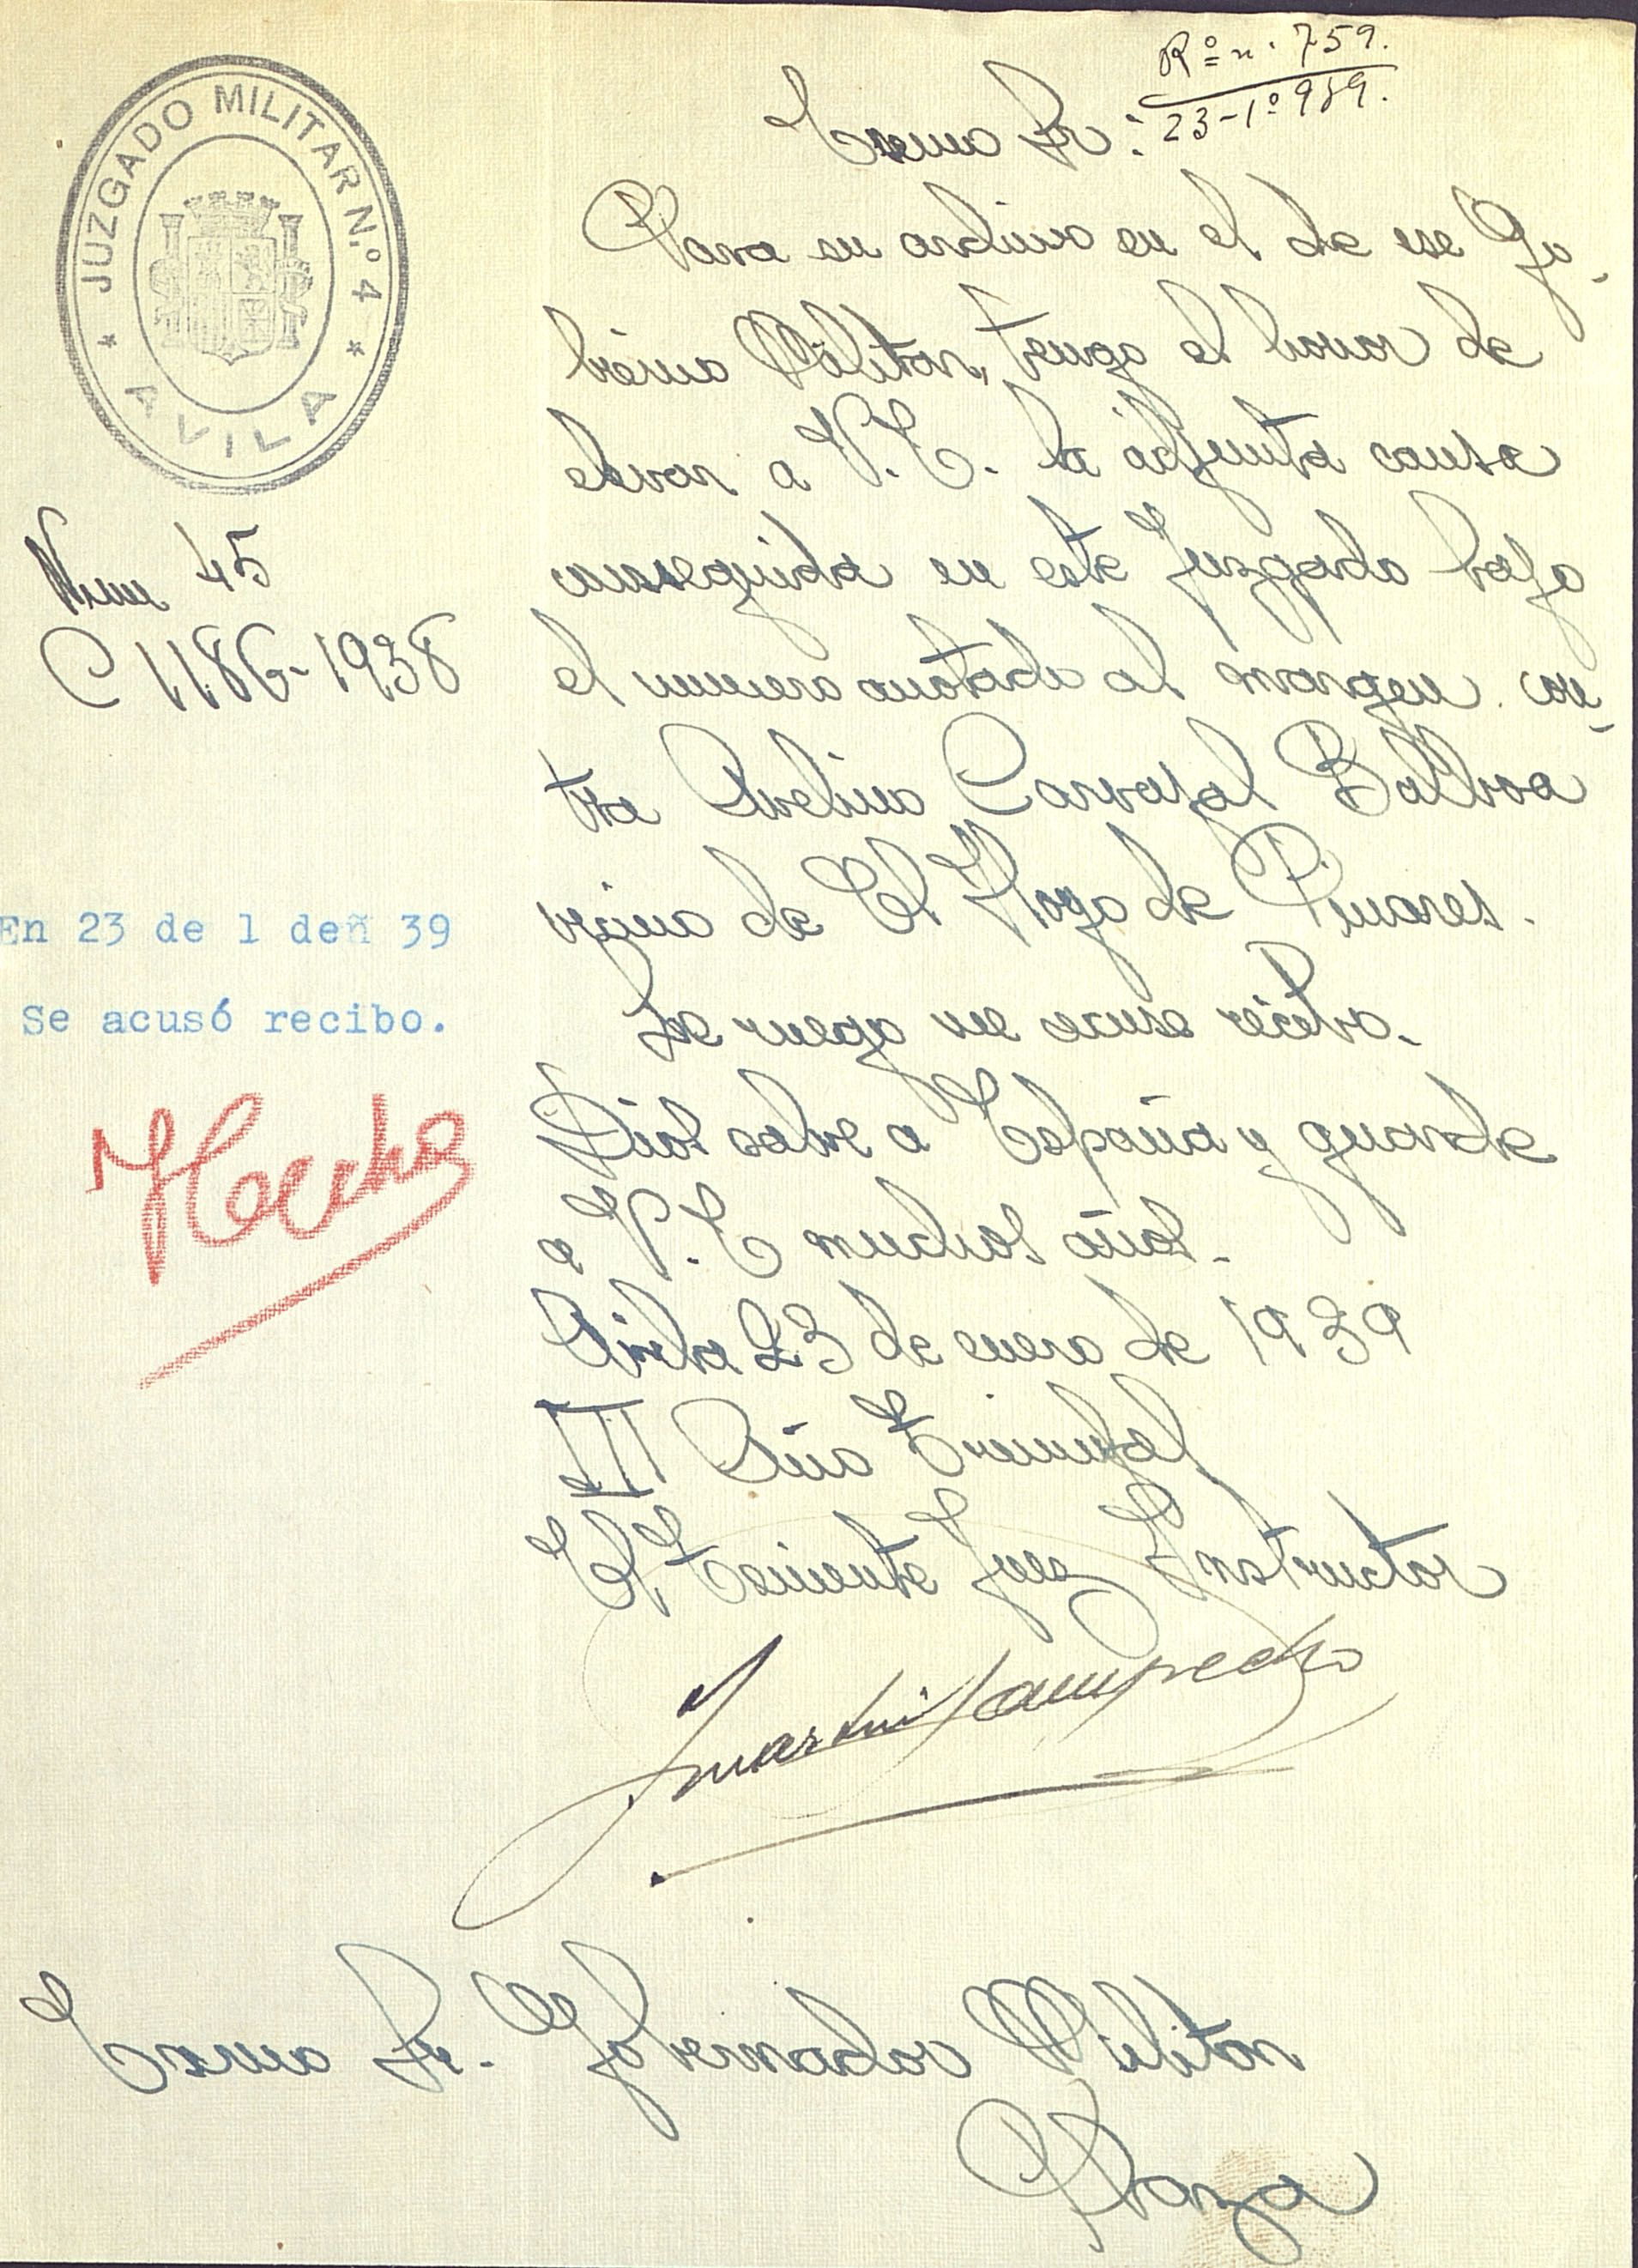 Rº n. 759.
23-1º 939.
JUZGADO MILITAR N.º 4
* AVILA *
Exmo Sr:
Para su archivo en el de ese Go-
bierno Militar, tengo el honor de
elevar a V.E. la adjunta causa
conseguida en este Juzgado bajo
el numero anotado al margen con-
tra Avelino Carvajal Balboa
vecino de El Hoyo de Pinares.
Le ruego me acuse recibo.
Dios salve a España y guarde
a V.E muchos años.
Avila 23 de enero de 1939
III Año Triunfal
El Teniente Juez Instructor
Num 45
C 1186-1938
En 23 de 1 deñ 39
Se acusó recibo.
Hecho
Exmo Sr. Gobernador Militar
Plaza